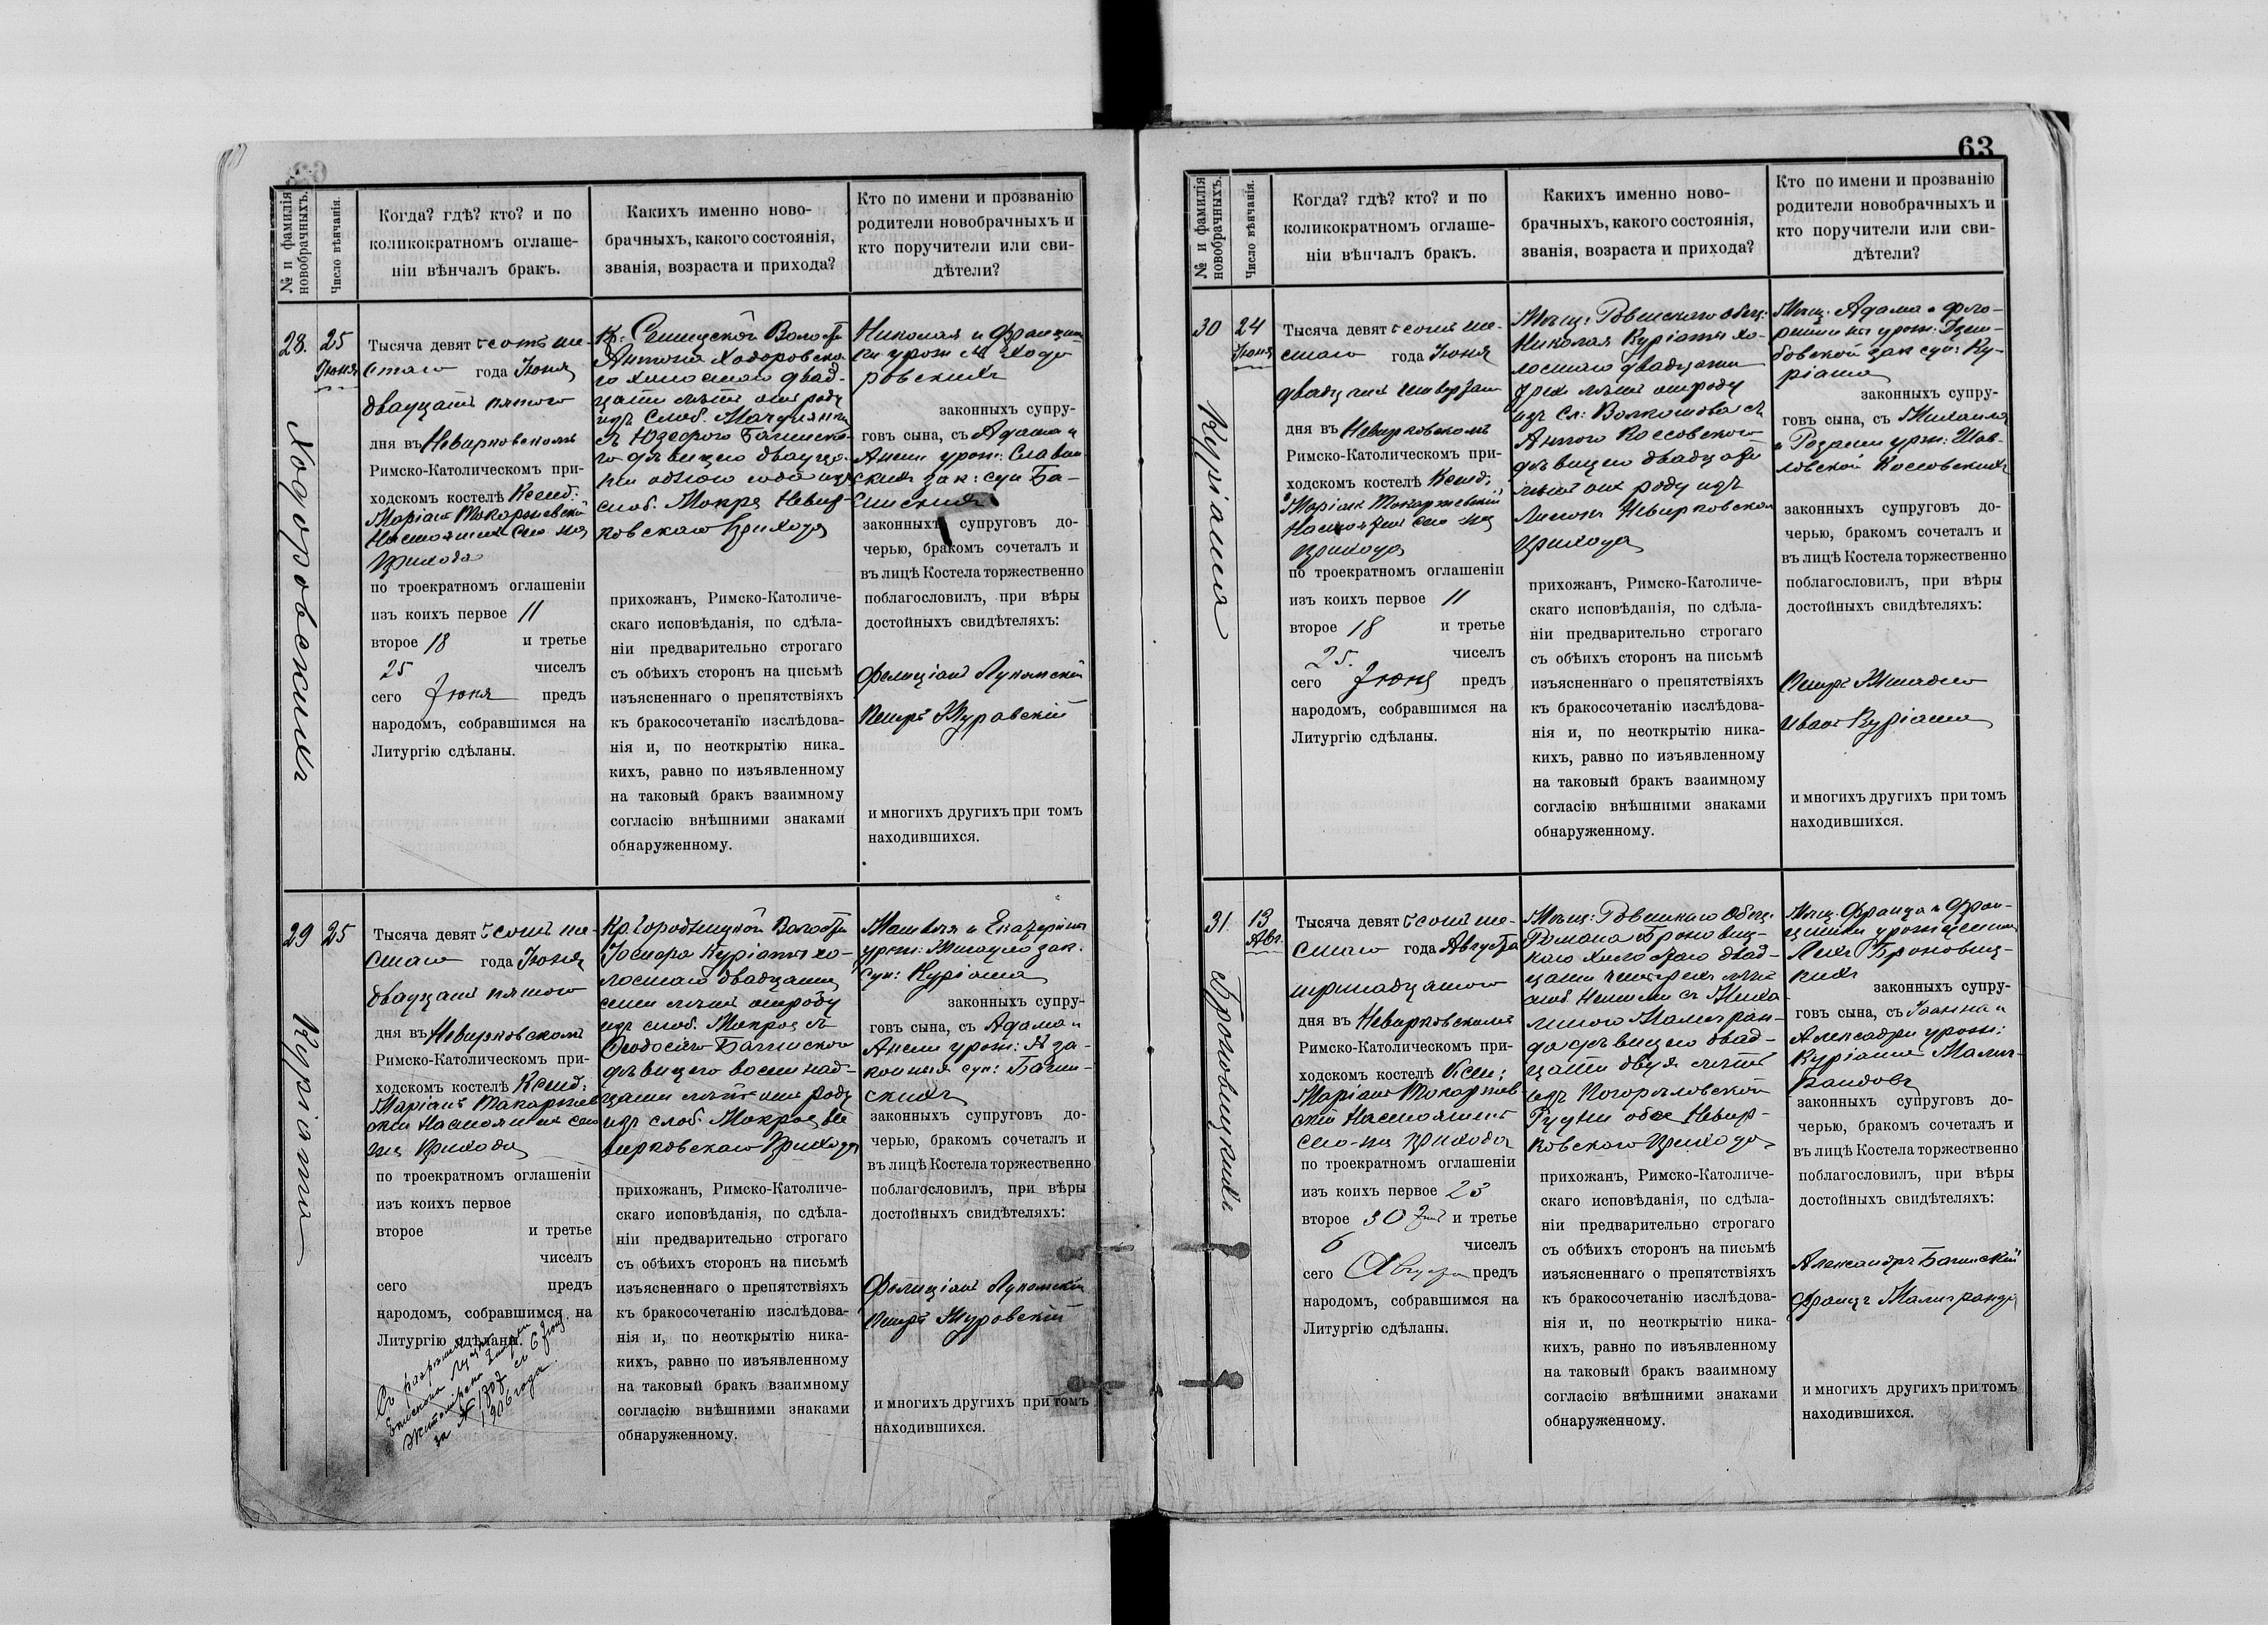 63
№ и фамилія новобрачныхъ.
Число вѣнчанія.
Когда? гдѣ? кто? и по
коликократномъ оглаше-
ніи вѣнчалъ бракъ.
Какихъ именно ново-
брачныхъ, какого состоянія,
званія, возраста и прихода?
Кто по имени и прозванію
родители новобрачныхъ и
кто поручители или сви-
дѣтели?
28.
Ходоровскихъ
25
Іюня
Тысяча девятсотъ ше-
стаго года Іюня
двадцать пятого
дня въ Невирковскомъ
Римско-Католическомъ при-
ходскомъ костелѣ Ксенд:
Маріан Токаржевскій
Настоятель сего-же
Прихода
по троекратномъ оглашеніи
изъ коихъ первое 11
второе 18 и третье
25 чиселъ
сего Іюня предъ
народомъ, собравшимся на
Литургію сдѣланы.
Волости
Антона Ходоровска-
го холостаго двад-
цати лѣтъ отъ роду
изъ Слоб.
съ Юзефою Багинско-
ю дѣвицею двадца-
ти одного года изъ
слоб. Мокре Невир-
ковскаго Прихода
прихожанъ, Римско-Католиче-
скаго исповѣданія, по сдѣла-
ніи предварительно строгаго
съ обѣихъ сторонъ на письмѣ
изъясненнаго о препятствіяхъ
къ бракосочетанію изслѣдова-
нія и, по неоткрытію ника-
кихъ, равно по изъявленному
на таковый бракъ взаимному
согласію внѣшними знаками
обнаруженному.
Николая и Франциш
ки урож Ходо
ровскихъ
законныхъ супру-
говъ сына, съ Адама и
Анели урож:
зак: суп Ба-
гинскихъ
законныхъ супруговъ до-
черью, бракомъ сочеталъ и
въ лицѣ Костела торжественно
поблагословилъ, при вѣры
достойныхъ свидѣтеляхъ:
Фелиціан Лукомскій
Петръ Муровскій
и многихъ другихъ при томъ
находившихся.
29
Куріата
25
Тысяча девятсотъ ше-
стаго года Іюня
двадцать пятого
дня въ Невирковскомъ
Римско-Католическомъ при-
ходскомъ костелѣ Ксенд:
Маріанъ Токаржев
скій Настоятель сего
же Прихода
по троекратномъ оглашеніи
изъ коихъ первое
второе и третье
чиселъ
сего предъ
народомъ, собравшимся на
Литургію сдѣланы.
Съ
Епископа
за № 1707 съ 6 Іюня
1906 года.
Кр. Городницкой Волости
Іосифа Куріаты хо-
лостаго двадцати
семи лѣтъ отроду
изъ слоб. Мокрое съ
Ѳеодосіею Багинскою
дѣвицею восемнад-
цати лѣтъ отъ роду
изъ слоб. Мокрое Не
вирковскаго Прихода
прихожанъ, Римско-Католиче-
скаго исповѣданія, по сдѣла-
ніи предварительно строгаго
съ обѣихъ сторонъ на письмѣ
изъясненнаго о препятствіяхъ
къ бракосочетанію изслѣдова-
нія и, по неоткрытію ника-
кихъ, равно по изъявленному
на таковый бракъ взаимному
согласію внѣшними знаками
обнаруженному.
Матвѣя и Екатерины
урож: зак.
суп: Куріата
законныхъ супру-
говъ сына, съ Адама и
Анели урож: за-
конныхъ суп: Багин-
скихъ
законныхъ супруговъ до-
черью, бракомъ сочеталъ и
въ лицѣ Костела торжественно
поблагословилъ, при вѣры
достойныхъ свидѣтеляхъ:
Фелиціан Лукомскій
Петръ Муровскій
и многихъ другихъ при томъ
находившихся.
№ и фамилія новобрачныхъ.
Число вѣнчанія.
Когда? гдѣ? кто? и по
коликократномъ оглаше-
ніи вѣнчалъ бракъ.
Какихъ именно ново-
брачныхъ, какого состоянія,
званія, возраста и прихода?
Кто по имени и прозванію
родители новобрачныхъ и
кто поручители или сви-
дѣтели?
30
Куріата
24
Іюня
Тысяча девятсотъ ше-
стаго года Іюня
двадцать четвертаго
дня въ Невирковскомъ
Римско-Католическомъ при-
ходскомъ костелѣ Ксенд:
Маріан Токаржевскій
Настоятель сего-же
Прихода
по троекратномъ оглашеніи
изъ коихъ первое 11
второе 18 и третье
25. чиселъ
сего Іюня предъ
народомъ, собравшимся на
Литургію сдѣланы.
Мѣщ: Ровенскаго общ:
Николая Куріаты хо-
лостаго двадцати
трех лѣтъ отроду
изъ Сл: Волкошова съ
Антого Коссовского
дѣвицею двадцати
лѣтъ отъ роду изъ
Невирковскаго
Прихода
прихожанъ, Римско-Католиче-
скаго исповѣданія, по сдѣла-
ніи предварительно строгаго
съ обѣихъ сторонъ на письмѣ
изъясненнаго о препятствіяхъ
къ бракосочетанію изслѣдова-
нія и, по неоткрытію ника-
кихъ, равно по изъявленному
на таковый бракъ взаимному
согласію внѣшними знаками
обнаруженному.
Мѣщ. Адама и Фло-
рентины урож:
зак суп: Ку-
ріата
законныхъ супру-
говъ сына, съ Михаила
и Розаліи урж: Шав-
ловской Коссовскихъ
законныхъ супруговъ до-
черью, бракомъ сочеталъ и
въ лицѣ Костела торжественно
поблагословилъ, при вѣры
достойныхъ свидѣтеляхъ:
Петръ
Иванъ Куріата
и многихъ другихъ при томъ
находившихся.
31.
Броновицкихъ
13
Авг.
Тысяча девятсотъ ше-
стаго года Августа
тринадцатого
дня въ Невирковскомъ
Римско-Католическомъ при-
ходскомъ костелѣ Ксен:
Маріан Токаржев
скій Настоятель
сего-же прихода
по троекратномъ оглашеніи
изъ коихъ первое 23
второе 30 и третье
6 чиселъ
сего Августа предъ
народомъ, собравшимся на
Литургію сдѣланы.
Мѣщ: Ровенскаго Общ.
Романа Броновиц-
каго холостаго двад-
цати четырех лѣтъ
слоб. съ Миха-
линою Малигран-
да дѣвицею двад-
цати двух лѣтъ
изъ Погорѣловской
Рудни обое Невир-
ковскаго Прихода
прихожанъ, Римско-Католиче-
скаго исповѣданія, по сдѣла-
ніи предварительно строгаго
съ обѣихъ сторонъ на письмѣ
изъясненнаго о препятствіяхъ
къ бракосочетанію изслѣдова-
нія и, по неоткрытію ника-
кихъ, равно по изъявленному
на таковый бракъ взаимному
согласію внѣшними знаками
обнаруженному.
Мѣщ. Франца и Фран-
цишки урож
Броновиц-
кихъ
законныхъ супру-
говъ сына, съ Іоанна и
Александры урож:
Куріата Малиг-
рандовъ
законныхъ супруговъ до-
черью, бракомъ сочеталъ и
въ лицѣ Костела торжественно
поблагословилъ, при вѣры
достойныхъ свидѣтеляхъ:
Александръ Багинскій
Францъ Малигранда
и многихъ другихъ при томъ
находившихся.